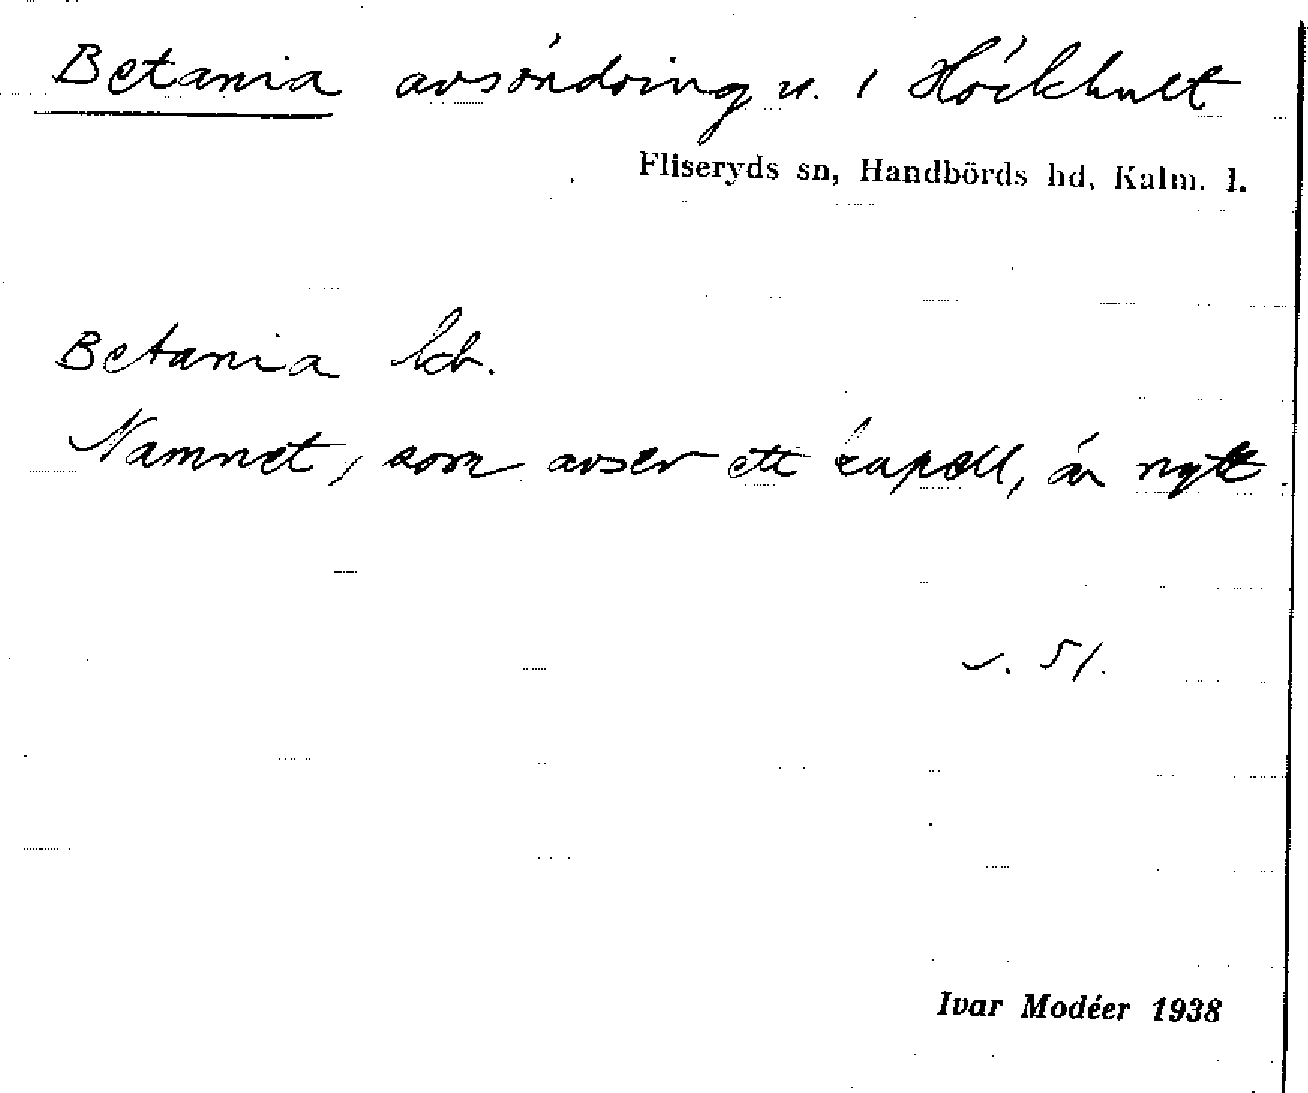 Betania avsöndring u. 1 Höckhult
Fliseryds sn, Handbörds hd, Kalm. l.
Betania kb.
Namnet, som avser ett kapell, är nytt.
s. 51.
Ivar Modéer 1938